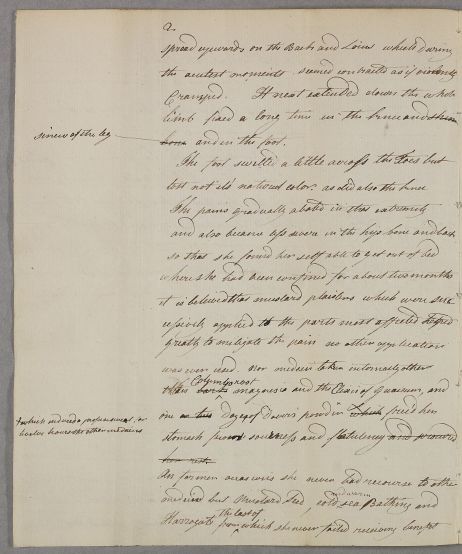 2
spread upwards on the Back and Loins which during
the acutest moments seemed contracted as if violently
Cramped. It next extended down the whole
limb fixed a long time in the knee and
sinew of the leg
and in the foot.
The foot swelled a little across the Toes but
lost not its natural color as did also the knee
The pains gradually abated in that extremity
and also became less severe in the hip bone and back
so that she found her self able to get out of bed
where she had been confined for about two months
it is believed that mustard plaisters which were suc
cessively applied to the parts most affected
greatly to mitigate the pain no other application
was ever used. nor medicine taken internally other
than Columbo root magnesia and the Elixir of Guaicum, and
one or two Doses of Dovers powder which freed her
which induced a profuse sweat, for
twelve hours the other medicines
stomach from sourness and flatulency and procured
her rest.
On former occasions she never had recourse to other
medicine but Mustard Seed, cold and warm sea Bathing and
Harrogate from the last of which she never failed receiving benefit